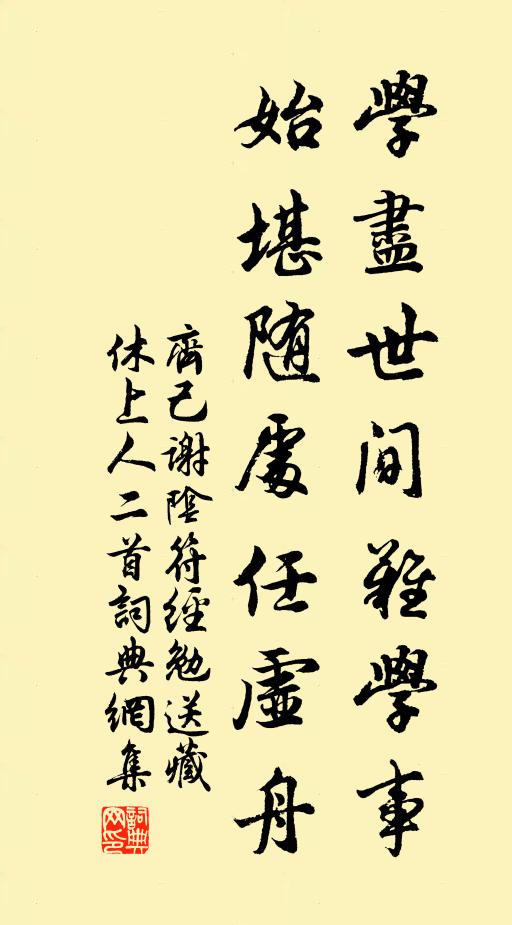 學盡世間難學事
始堪随處任虛舟
齊己謝陰符經勉送藏
休上人二首詞典網集
詞典
网印